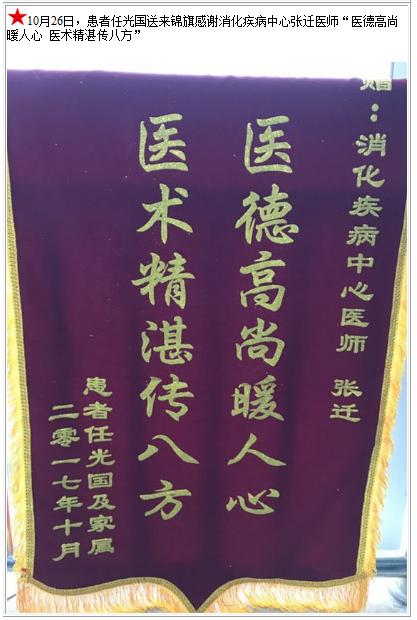 10月26日，患者任光国送来锦旗感谢消化疾病中心张迁医师“医德高尚
暖人心 医术精湛传八方”
赠：消化疾病中心医师 张迁
医德高尚暖人心
医术精湛传八方
患者任光国及家属
二零一七年十月